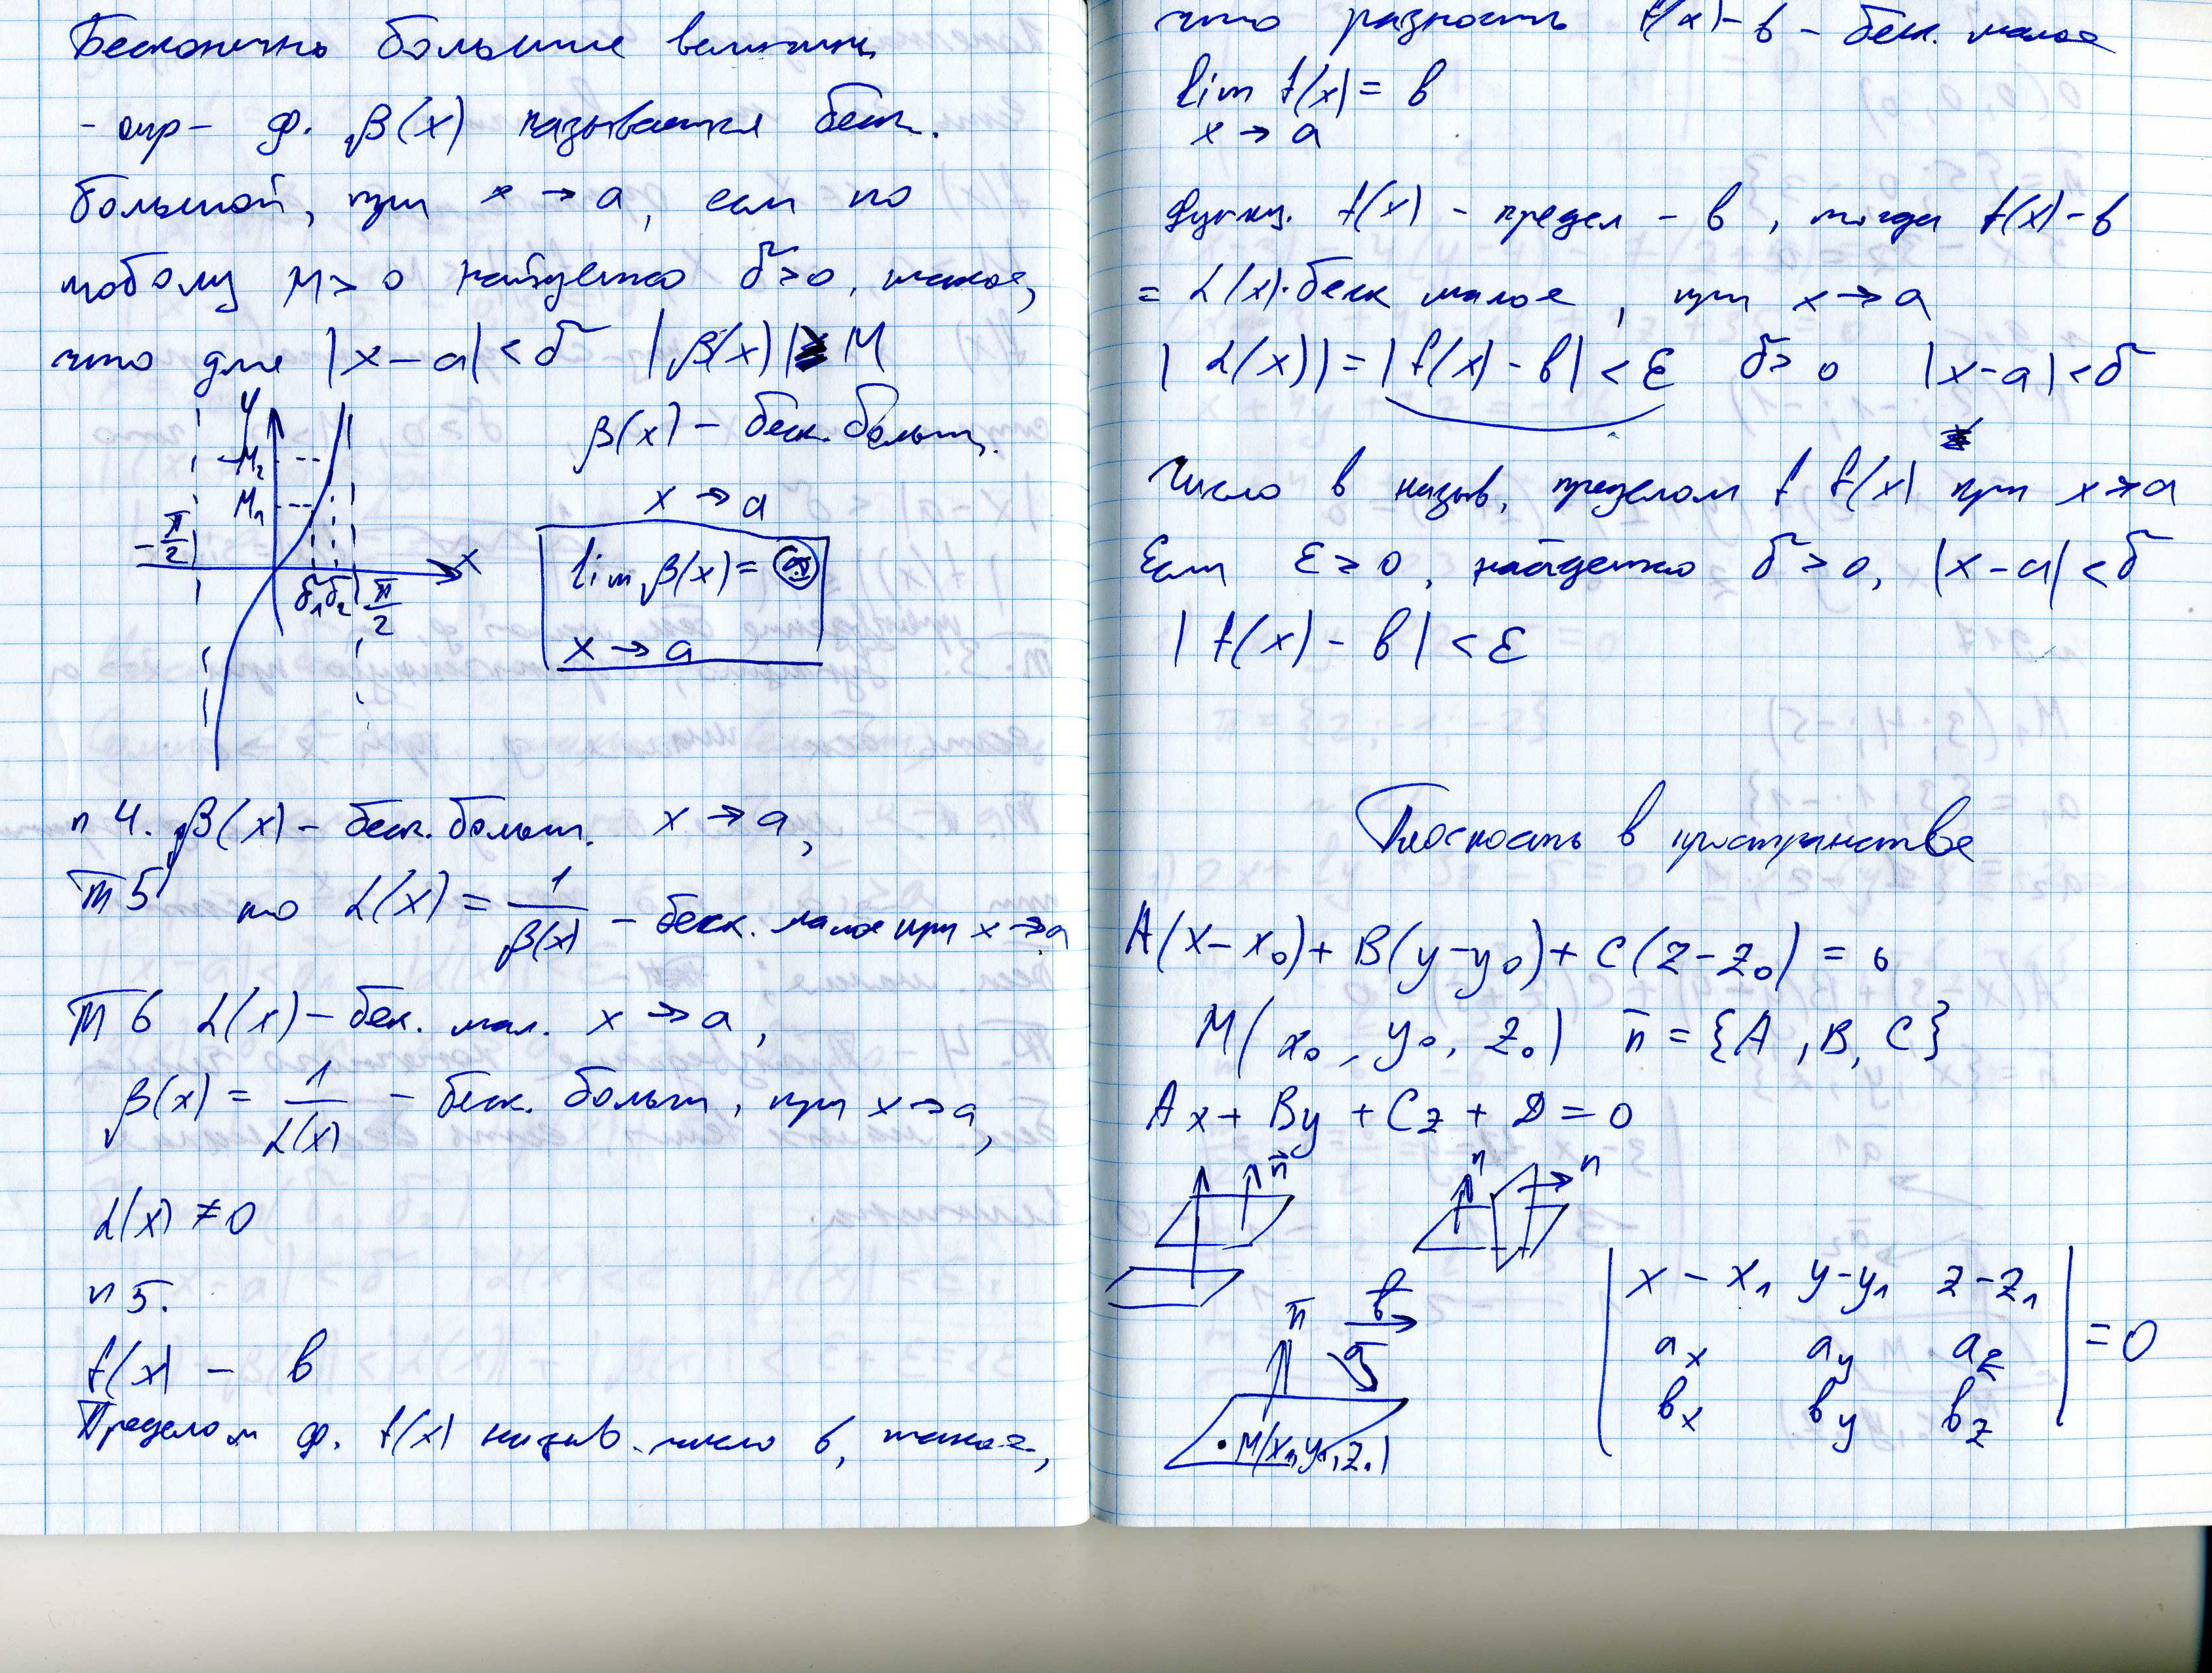 Бесконечно большие величины
- опр- ф. β(x) называется беск.
большой, при x → a, если по
любому M > 0 найдется δ > 0, такое,
что для |x - a| < δ |β(x)| > M
y
M₂
M₁
-π/2
δ₁ δ₂ π/2
x
β(x) - беск. больш.
x → a
lim β(x) = ∞
x → a
п 4. β(x) - беск. больш. x → a,
Т 5 то α(x) = 1/β(x) - беск. малое при x → a
Т 6 α(x) - бек. мал. x → a,
β(x) = 1/α(x) - беск. больш, при x → a,
α(x) ≠ 0
п 5.
f(x) - в
Пределом ф. f(x) назыв. число в, такое,
что разность f(x) - в - беск. малое
lim f(x) = в
x → a
Функц. f(x) - предел - в, тогда f(x) - в
= α(x) · беск малое, при x → a
|α(x)| = |f(x) - в| < ε δ > 0 |x - a| < δ
Число в назыв. пределом f f(x) при x → a
Если ε > 0, найдется δ > 0, |x - a| < δ
|f(x) - в| < ε
Плоскость в пространстве
A(x - x₀) + B(y - y₀) + C(z - z₀) = 0
M(x₀, y₀, z₀) n̄ = {A, B, C}
Ax + By + Cz + D = 0
n̄
n̄ n
n̄ в
ā
M(x₁, y₁, z₁)
| x - x₁ y - y₁ z - z₁ |
| aₓ a_y a_z | = 0
| вₓ в_y в_z |